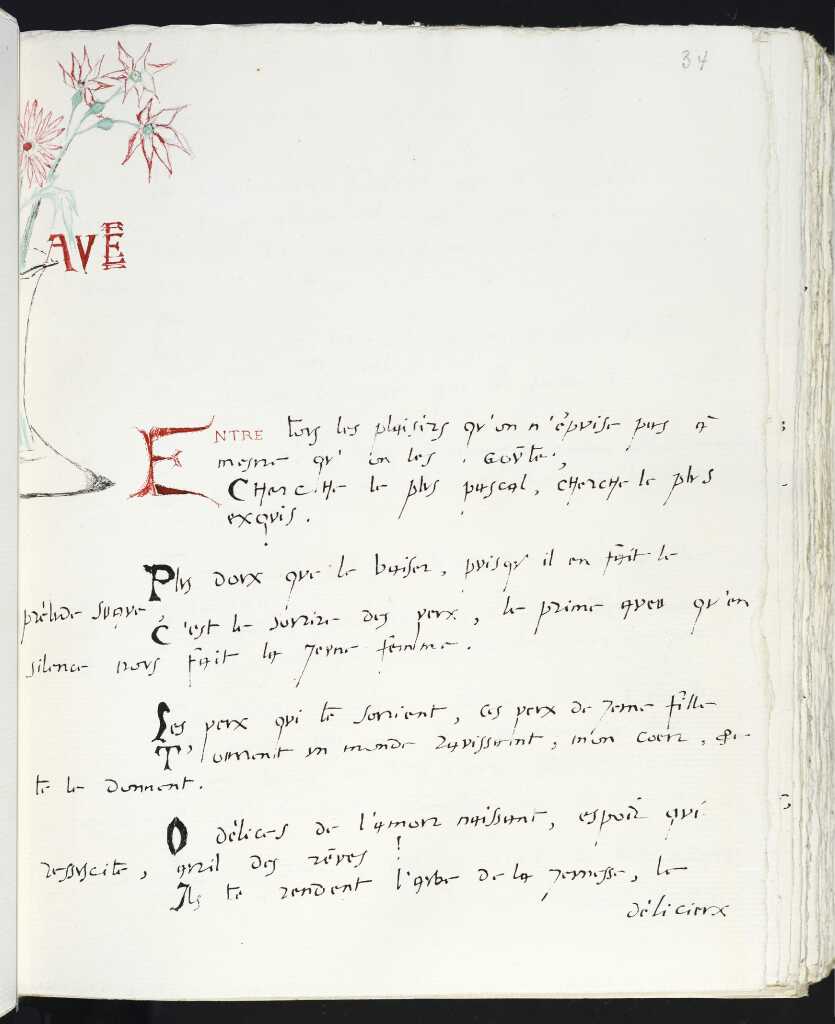 34
AVE
ENTRE tous les plaisirs qu'on n'épuise pas à
mesure qu'on les goûte,
Cherche le plus pascal, cherche le plus
exquis.
Plus doux que le baiser, puisqu'il en fait le
prélude suave,
C'est le sourire des yeux, le prime aveu qu'en
silence nous fait la jeune femme.
Les yeux qui te sourient, ces yeux de jeune fille
T'ouvrent un monde ravissant, mon coeur, et
te le donnent.
O délices de l'amour naissant, espoir qui
ressuscite, avril des rêves !
Ils te rendent l'aube de la jeunesse, le
délicieux